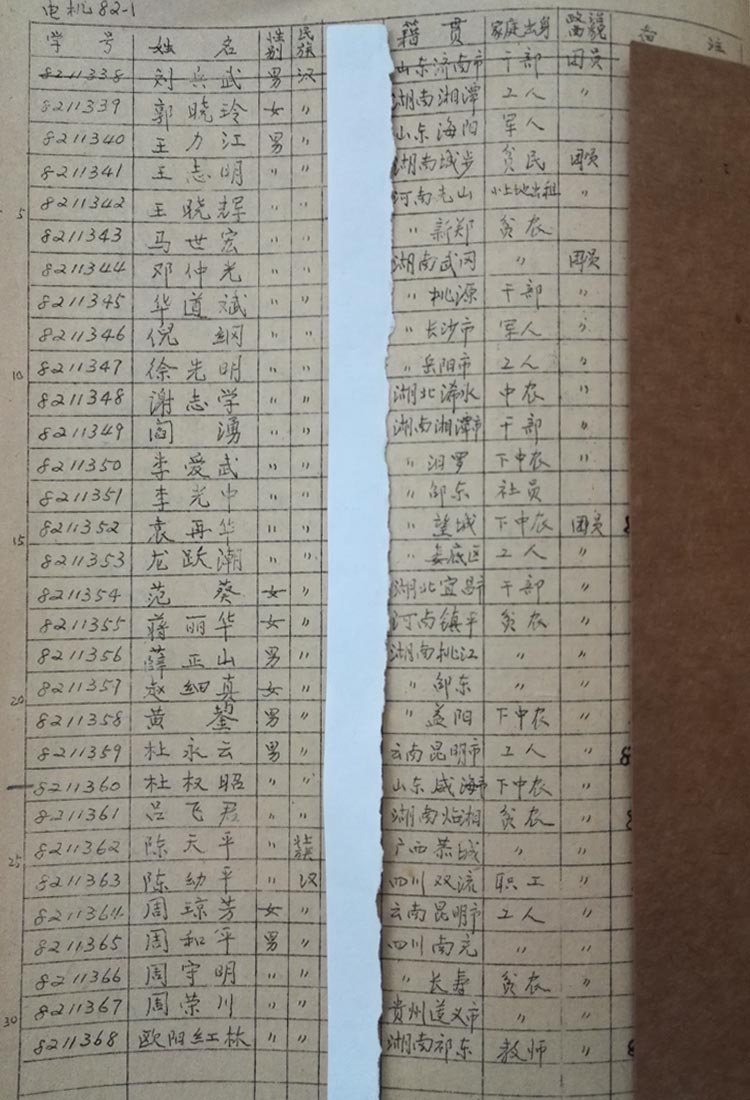 电机82-1
学号 姓名 性别 民族 籍贯 家庭出身 政治面貌 备注
8211338 刘兵武 男 汉 山东济南市 干部 团员
8211339 郭晓玲 女 〃 湖南湘潭 工人 〃
8211340 王力江 男 〃 山东海阳 军人
8211341 王志明 〃 〃 湖南城步 贫民 团员
5 8211342 王晓辉 〃 〃 河南光山 小土地出租 〃
8211343 马世宏 〃 〃 〃 新郑 贫农
8211344 邓仲光 〃 〃 湖南武冈 〃 团员
8211345 华道斌 〃 〃 〃 桃源 干部 〃
8211346 倪纲 〃 〃 〃 长沙市 军人 〃
10 8211347 徐先明 〃 〃 〃 岳阳市 工人 〃
8211348 谢志学 〃 〃 湖北浠水 中农 〃
8211349 阎湧 〃 〃 湖南湘潭市 干部 〃
8211350 李爱武 〃 〃 〃 汨罗 下中农 〃
8211351 李光中 〃 〃 〃 邵东 社员
15 8211352 袁再华 〃 〃 〃 望城 下中农 团员
8211353 龙跃潮 〃 〃 〃 娄底区 工人 〃
8211354 范葵 女 〃 湖北宜昌市 干部 〃
8211355 蒋丽华 女 〃 河南镇平 贫农 〃
8211356 薛正山 男 〃 湖南桃江 〃 〃
20 8211357 赵细真 女 〃 〃 邵东 〃 〃
8211358 黄 男 〃 〃 益阳 下中农 〃
8211359 杜永云 男 〃 云南昆明市 工人 〃
8211360 杜权昭 〃 〃 山东威海市 下中农 〃
8211361 吕飞君 〃 〃 湖南临湘 贫农 〃
25 8211362 陈天平 〃 壮族 广西恭城 〃 〃
8211363 陈幼平 〃 汉 四川双流 职工 〃
8211364 周琼芳 女 〃 云南昆明市 工人 〃
8211365 周和平 男 〃 四川南充 〃 〃
8211366 周守明 〃 〃 〃 长寿 贫农 〃
30 8211367 周荣川 〃 〃 贵州遵义市 〃 〃
8211368 欧阳红林 〃 〃 湖南祁东 教师 〃